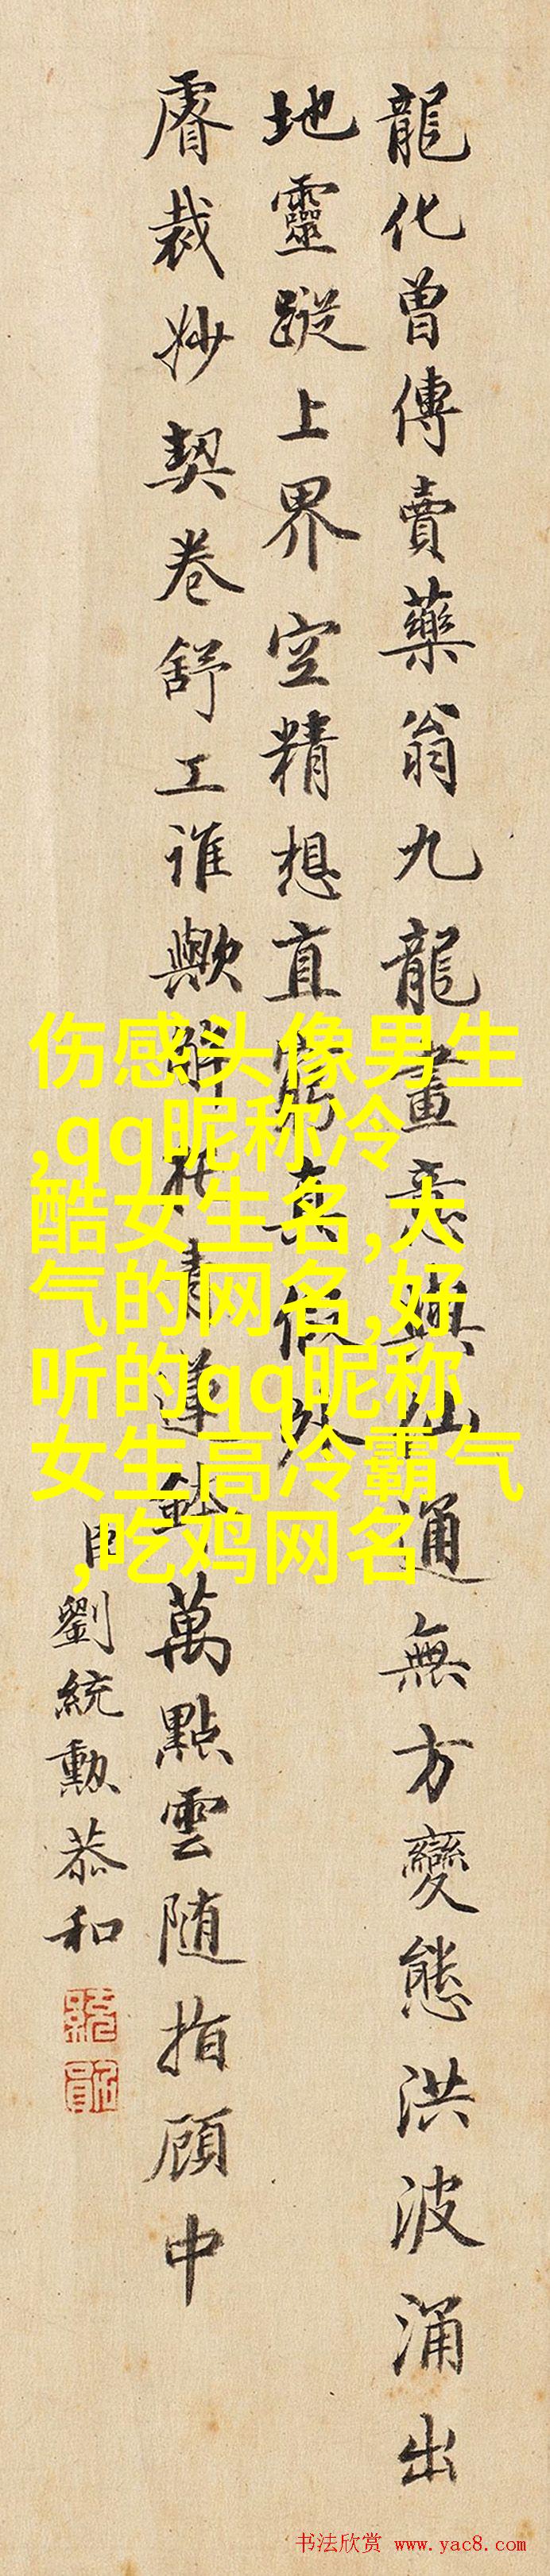 龍化曾傳賣藥翁九龍畫意與仙通無方變態洪波涌出
地靈蹤上界空精想直窮真假外
睿裁妙契卷舒工誰歟解作青蓮鉢萬點雲随指顧中
臣劉統勳恭和
伤感头像男生
,qq昵称冷
酷女生名,大
气的网名,好
听的qq昵称
女生高冷霸气
,吃鸡网名
书法欣赏 www.yac8.com